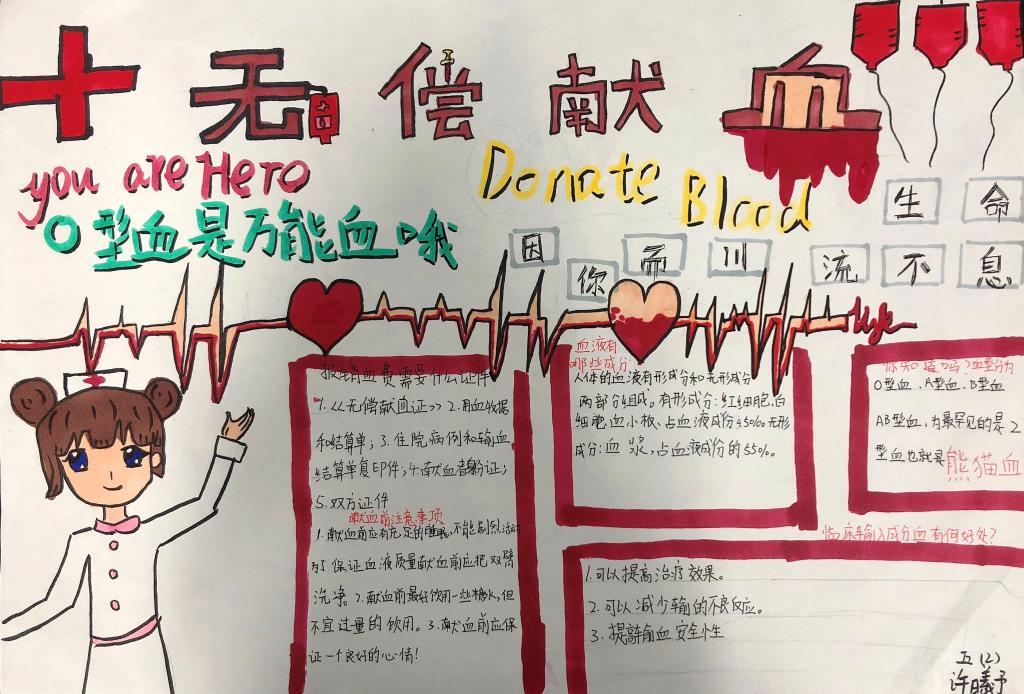 无偿献血
you are Hero
Donate Blood
O型血是万能血哦
生命
因你而川流不息
报销血费需要什么证件
1.《无偿献血证》2.用血收据
和结算单;3.住院病例和输血
结算单复印件;4.献血者身份证;
5.双方证件
献血前注意事项
1.献血前应有充足的睡眠,不能剧烈活动
为了保证血液质量献血前应把双臂
洗净。2.献血前最好饮用一些糖水,但
不宜过量的饮用。3.献血前应保
证一个良好的心情!
血液有
哪些成分
人体的血液有形成分和无形成分
两部分组成。有形成分:红细胞,白
细胞,血小板,占血液成份45%。无形
成分:血浆,占血液成份的55%。
你知道吗?血型分为
O型血、A型血、B型血
AB型血,为最罕见的是
型血也就是熊猫血
临床输入成分血有何好处?
1.可以提高治疗效果。
2.可以减少输的不良反应。
3.提高输血安全性
五(2)
许曦予